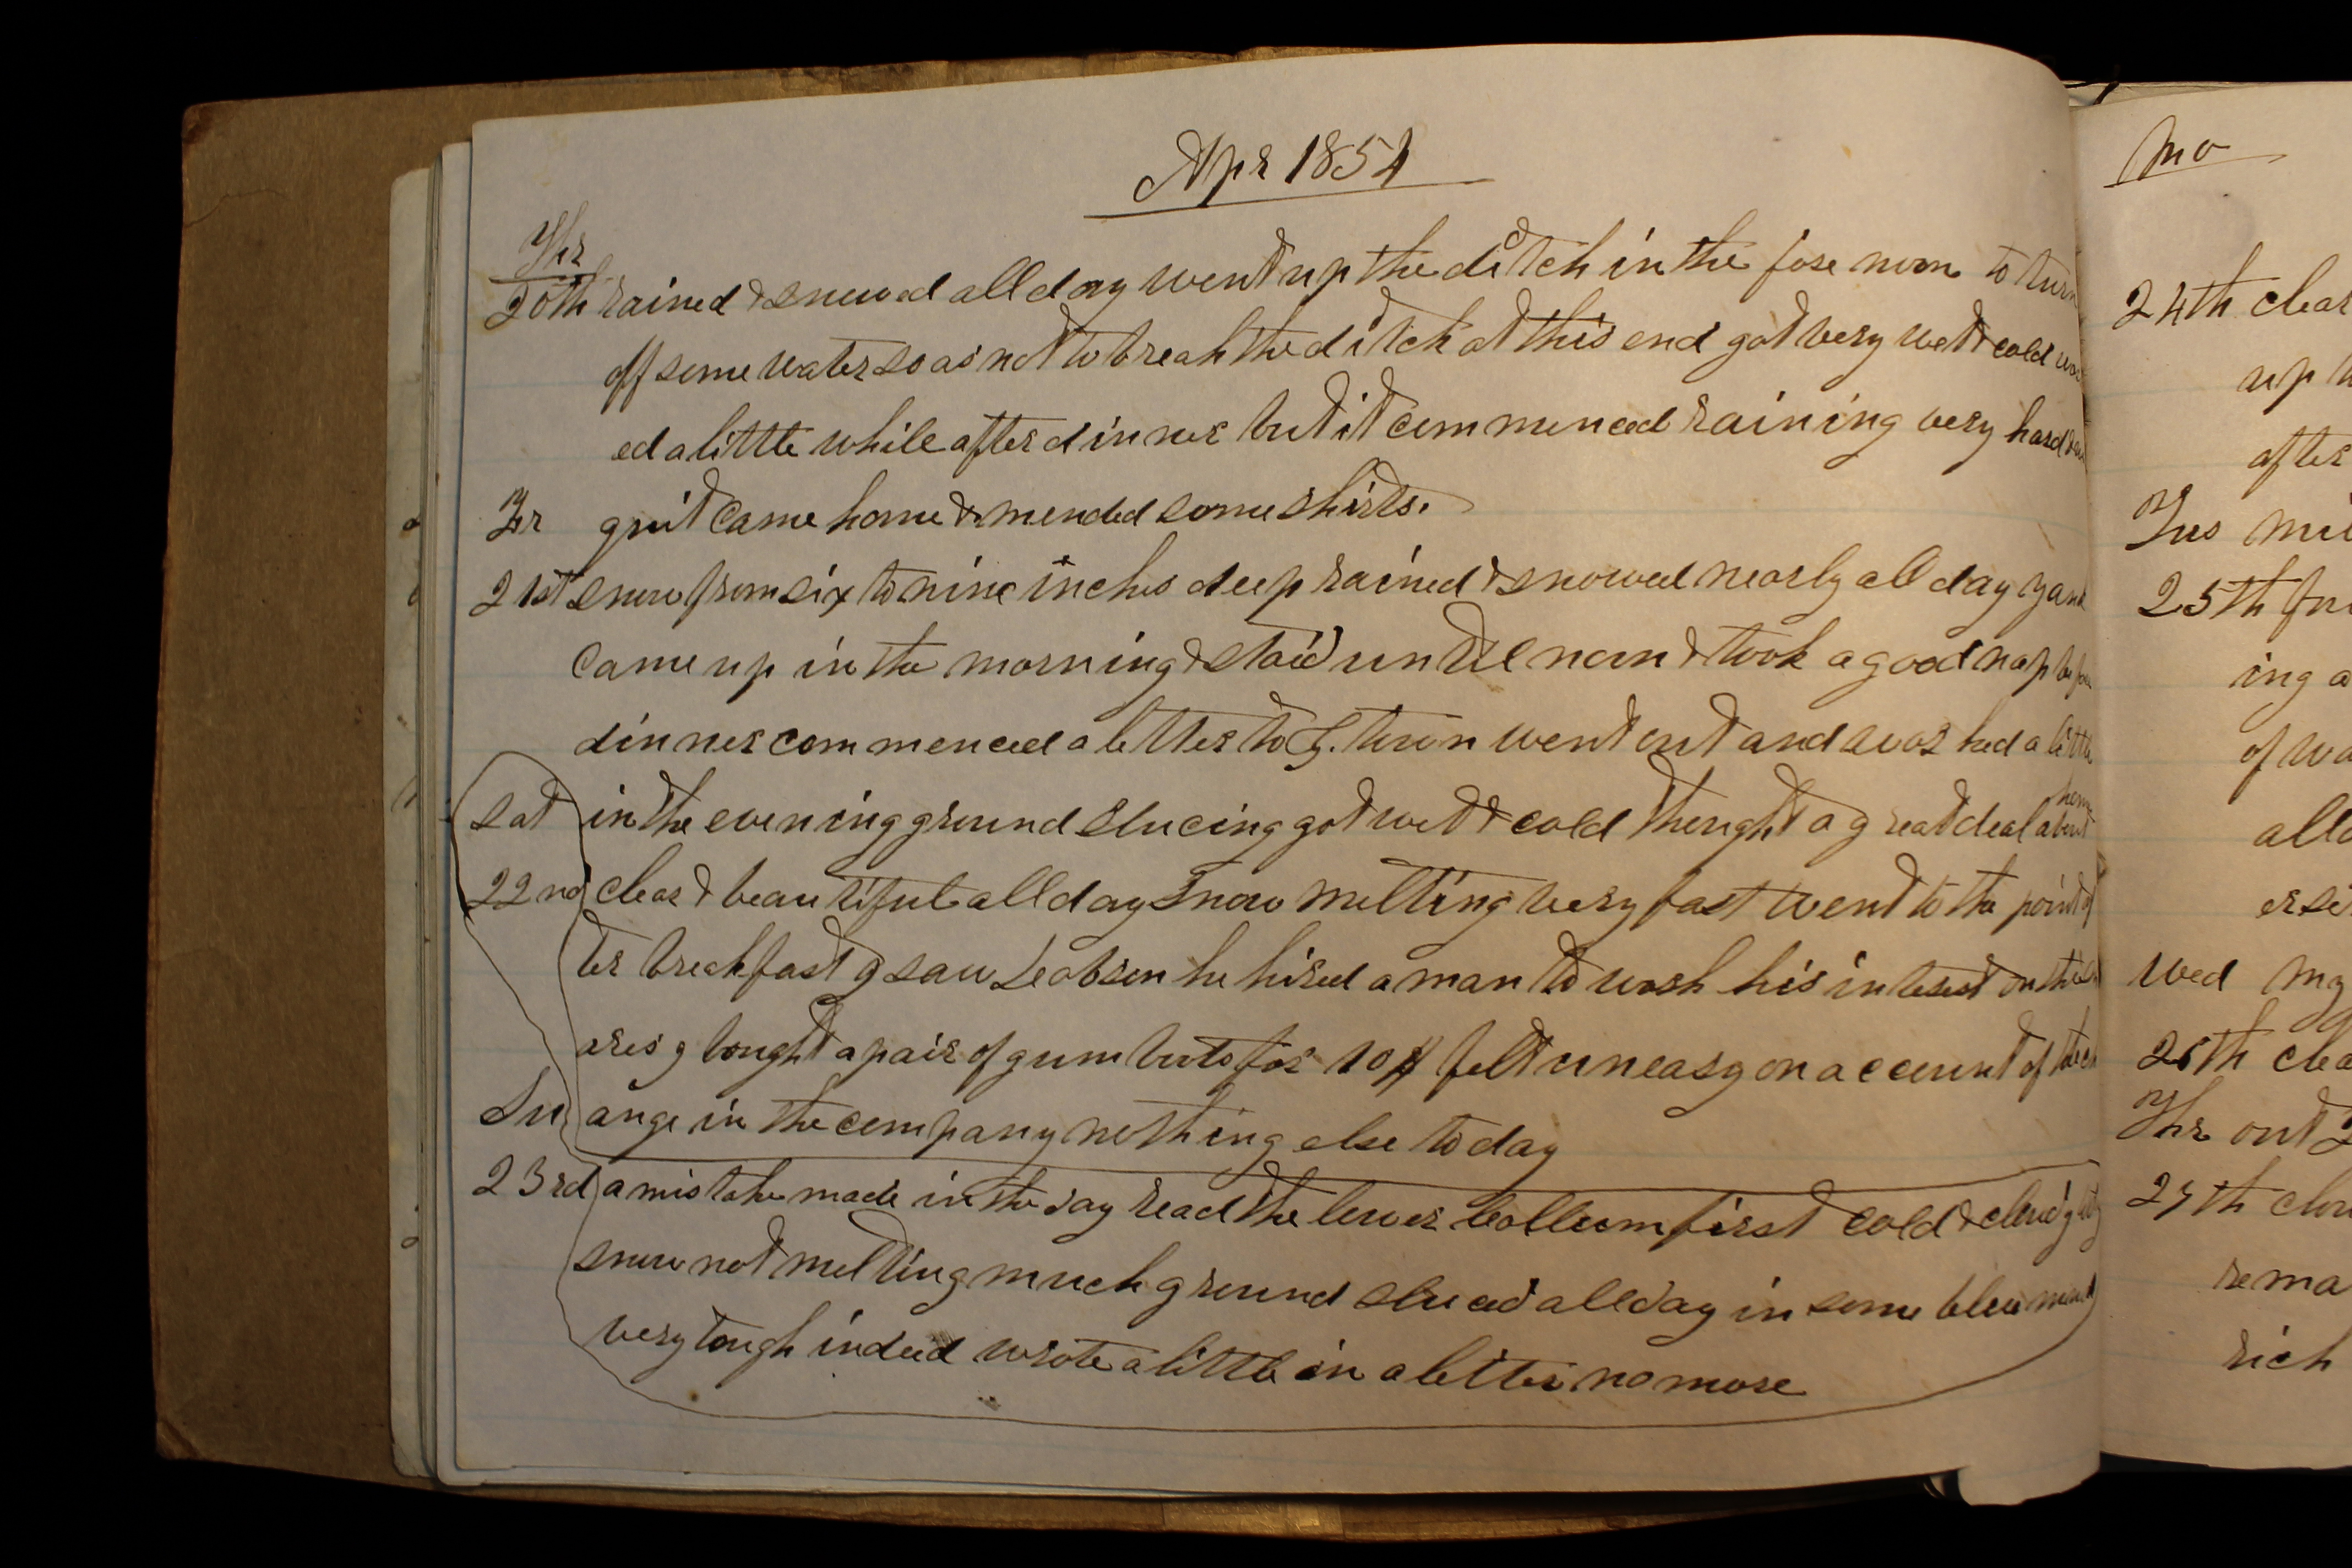 Apr 1854
Thr
20th rained & snowed all day went up the ditch in the fore noon to turn
off some water so as not to break the ditch at this end got very wet & cold
ed a little while after dinner but it commenced raining very hard
Fr quit came home & mended some shirts.
21st snow from six to nine inches deep rained & snowed nearly all day
came up in the morning & staid until noon & took a good nap before
dinner commenced a letter to town went out and worked a little
home
Sat in the evening ground slucing got wet & cold thought a great deal about
22nd clear & beautiful all day snow melting very fast went to the point af
ter breckfast I saw he hired a man to work his interest on the
ares I bought a pair of gum boots for 10$ felt uneasy on account of the ch
Su ange in the company nothing else to day
23rd a mistake made in the day read the lower collum first cold & cloudy
snow not melting much ground sluced all day in some blue
very tough indeed wrote a little in a letter no more
Mo
24th clear
up
after
Tus
25th
ing a
of wa
all
Wed my
26th clea
Thr out
27th clou
rema
rich